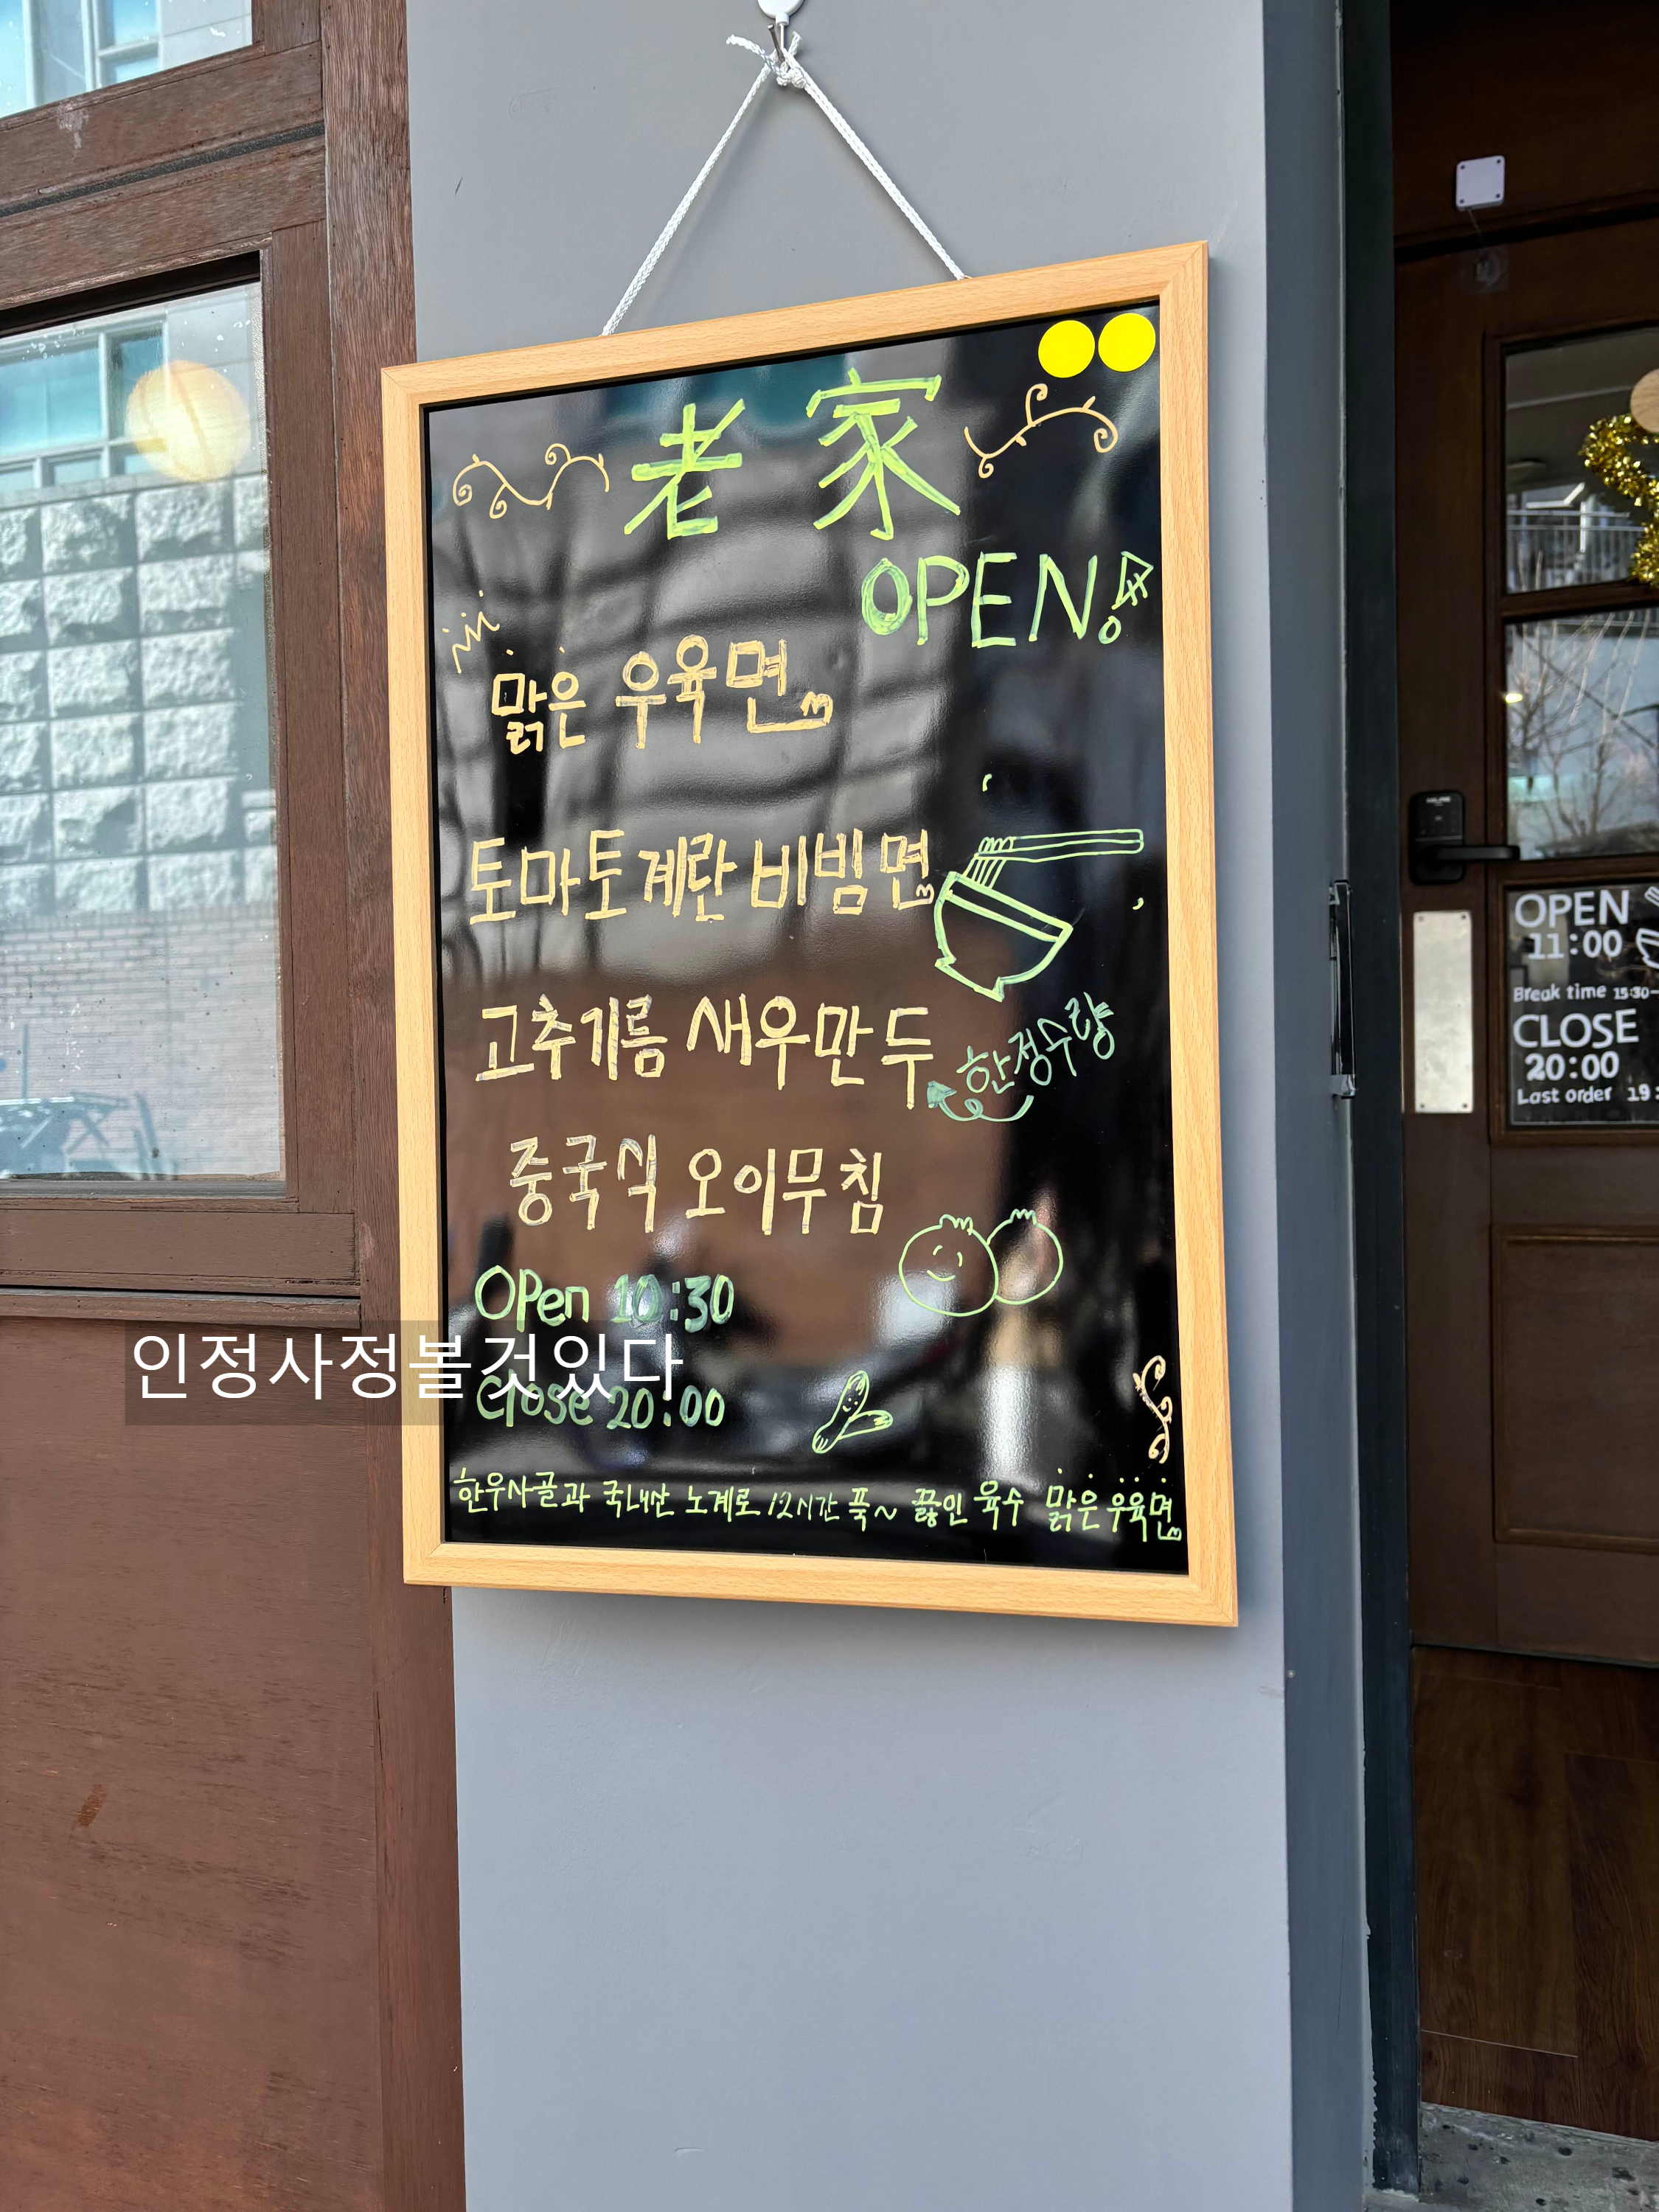 老家
OPEN!
맑은 우육면
토마토계란 비빔면
고추기름 새우만두
한정수량
중국식 오이무침
OPen 10:30
인정사정볼것있다
Close 20:00
한우사골과 국내산 노계로 12시간 푹~ 끓인 육수 맑은우육면
OPEN
11:00
Break time 15:30-
CLOSE
20:00
Last order 19: